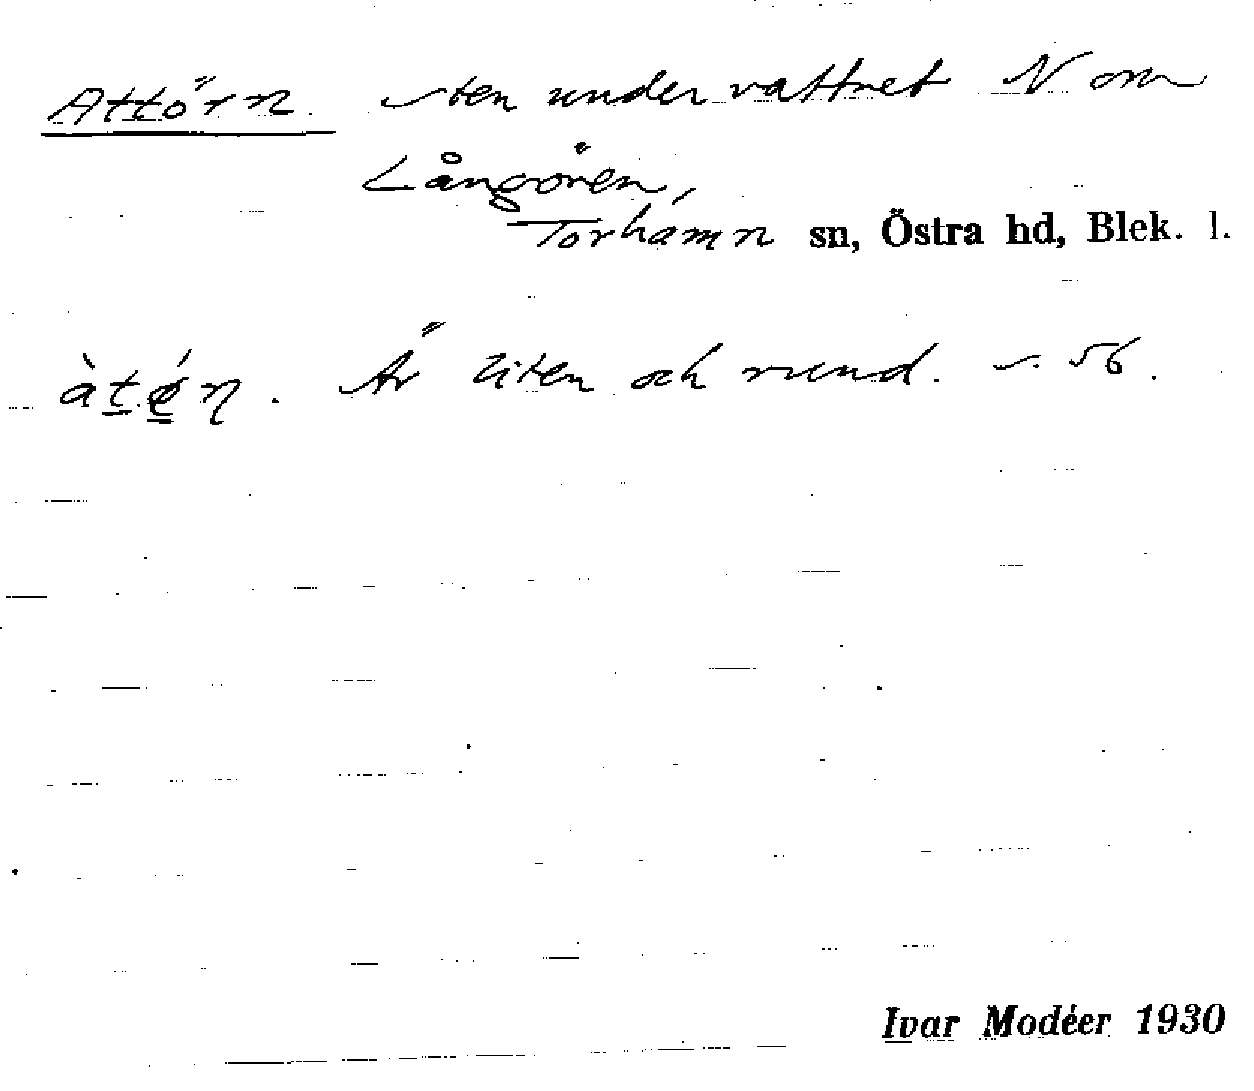 Attörn. sten under vattnet N om
Långören,
Torhamn sn, Östra hd, Blek. l.
àtę́n. Är liten och rund. s. 56.
Ivar Modéer 1930